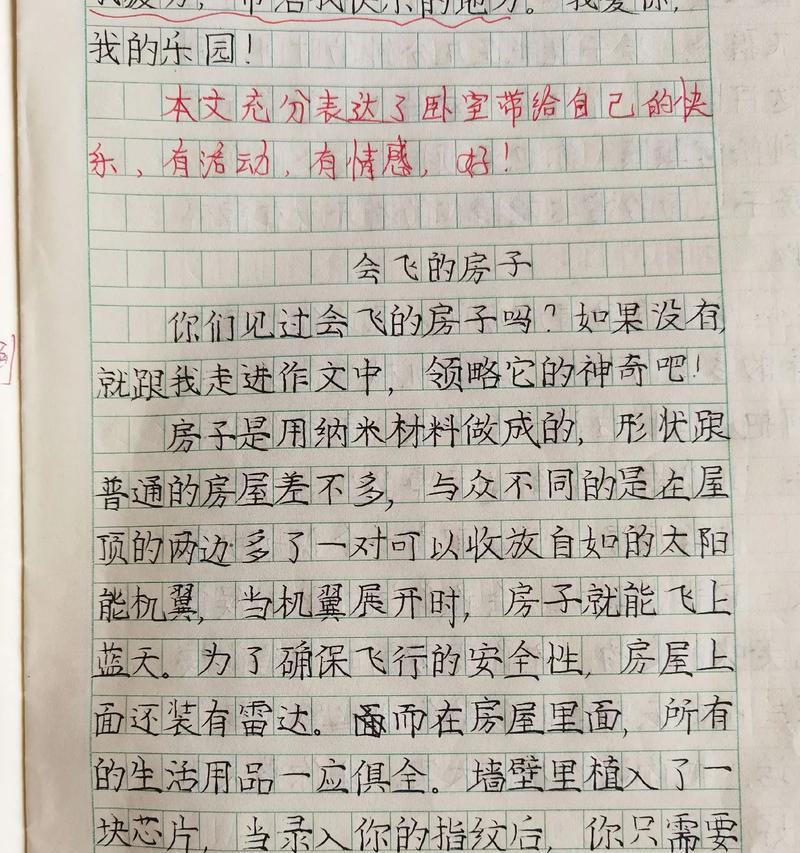 带给我快乐的地方。我爱你,
我的乐园!
本文充分表达了卧室带给自己的快
乐、有活动、有情感,好!
会飞的房子
你们见过会飞的房子吗?如果没有,
就跟我走进作文中,领略它的神奇吧!
房子是用纳米材料做成的,形状跟
普通的房屋差不多,与众不同的是在屋
顶的两边多了一对可以收放自如的太阳
能机翼,当机翼展开时,房子就能飞上
蓝天。为了确保飞行的安全性,房屋上
面还装有雷达。而在房屋里面,所有
的生活用品一应俱全。墙壁里植入了一
块芯片,当录入你的指纹后,你只需要